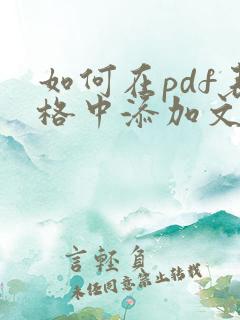 如何在pdf表
格中添加文
言轻负
未经同意禁止转载